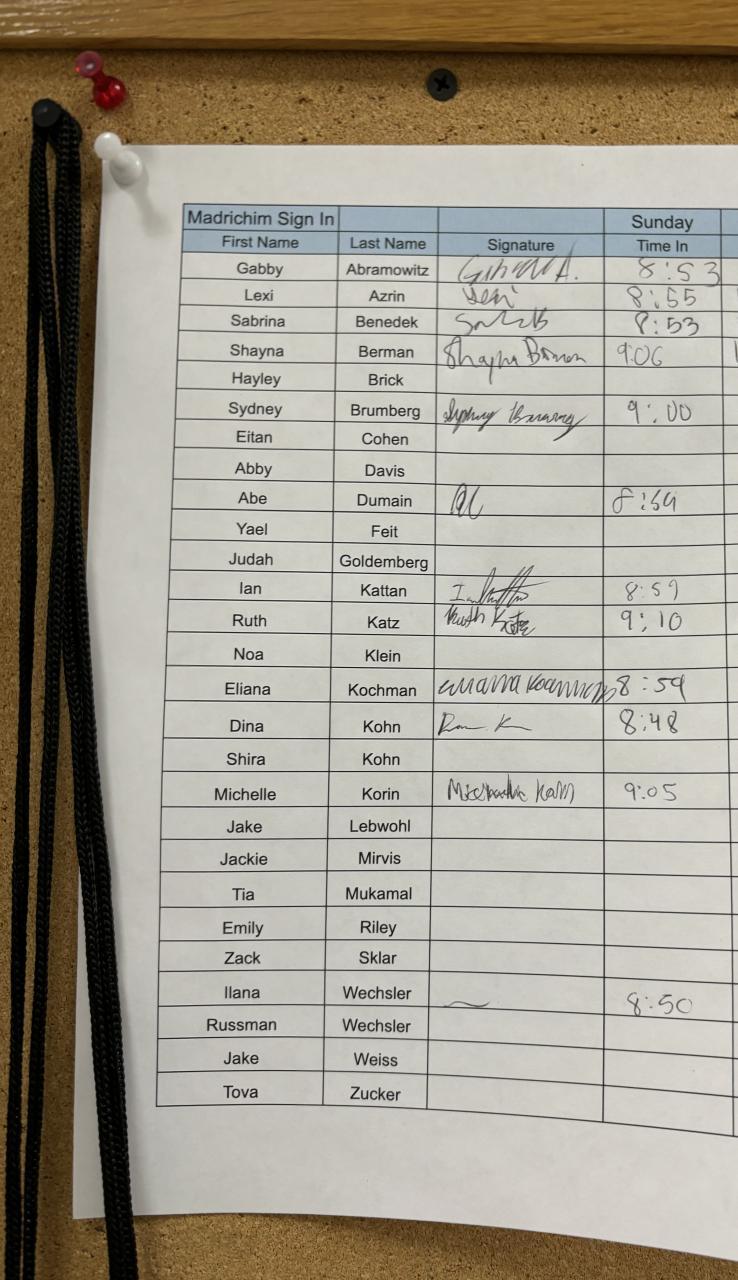 Madrichim Sign In Sunday
First Name Last Name Signature Time In
Gabby Abramowitz A. 8:53
Lexi Azrin Lexi 8:55
Sabrina Benedek 8:53
Shayna Berman Shayna Berman 9:06
Hayley Brick
Sydney Brumberg Sydney Brumberg 9:00
Eitan Cohen
Abby Davis
Abe Dumain 8:54
Yael Feit
Judah Goldemberg
Ian Kattan Ian Kattan 8:59
Ruth Katz Ruth Katz 9:10
Noa Klein
Eliana Kochman 8:59
Dina Kohn 8:48
Shira Kohn
Michelle Korin 9:05
Jake Lebwohl
Jackie Mirvis
Tia Mukamal
Emily Riley
Zack Sklar
Ilana Wechsler 8:50
Russman Wechsler
Jake Weiss
Tova Zucker